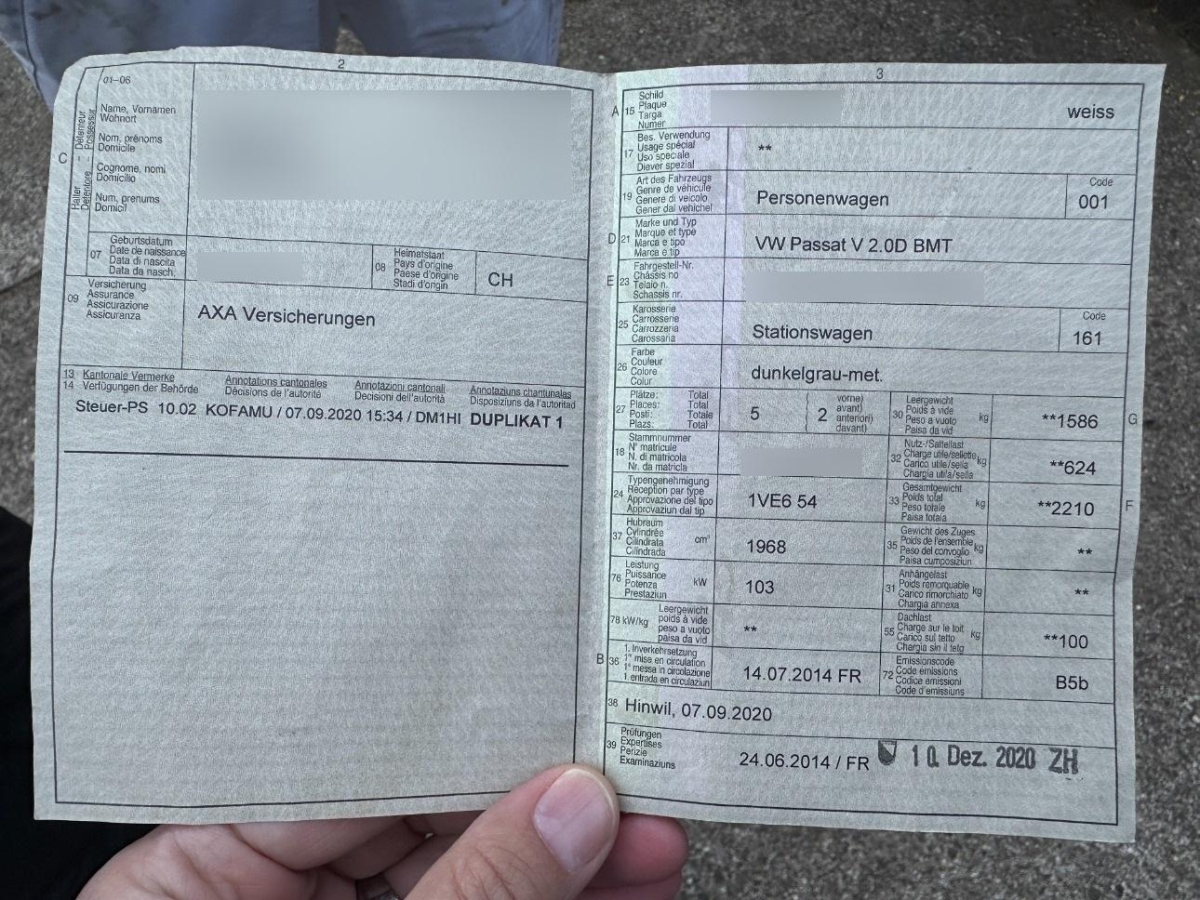 2
01–06
C
Halter – Détenteur
Detentore – Possessur
Name, Vornamen
Wohnort
Nom, prénoms
Domicile
Cognome, nomi
Domicilio
Num, prenums
Domicil
07
Geburtsdatum
Date de naissance
Data di nascita
Data da nasch.
08
Heimatstaat
Pays d'origine
Paese d'origine
Stadi d'origin
CH
09
Versicherung
Assurance
Assicurazione
Assicuranza
AXA Versicherungen
13 Kantonale Vermerke
Annotations cantonales
Annotazioni cantonali
Annotaziuns chantunalas
14 Verfügungen der Behörde
Décisions de l'autorité
Decisioni dell'autorità
Disposiziuns da l'autoritad
Steuer-PS 10.02 KOFAMU / 07.09.2020 15:34 / DM1HI DUPLIKAT 1
3
A 15
Schild
Plaque
Targa
Numer
weiss
17
Bes. Verwendung
Usage spécial
Uso speciale
Diever spezial
**
19
Art des Fahrzeugs
Genre de véhicule
Genere di veicolo
Gener dal vehichel
Personenwagen
Code
001
D 21
Marke und Typ
Marque et type
Marca e tipo
Marca e tip
VW Passat V 2.0D BMT
E 23
Fahrgestell-Nr.
Châssis no
Telaio n.
Schassis nr.
25
Karosserie
Carrosserie
Carrozzeria
Carossaria
Stationswagen
Code
161
26
Farbe
Couleur
Colore
Colur
dunkelgrau-met.
27
Plätze: Total
Places: Total
Posti: Totale
Plazs: Total
5
2
vorne)
avant)
anteriori)
davant)
30
Leergewicht
Poids à vide
Peso a vuoto
Paisa da vid
kg
**1586
G
18
Stammnummer
N° matricule
N. di matricola
Nr. da matricla
32
Nutz-/Sattellast
Charge utile/sellette
Carico utile/sella
Chargia utila/sella
kg
**624
24
Typengenehmigung
Réception par type
Approvazione del tipo
Approvaziun dal tip
1VE6 54
33
Gesamtgewicht
Poids total
Peso totale
Paisa totala
kg
**2210
F
37
Hubraum
Cylindrée
Cilindrata
Cilindrada
cm³
1968
35
Gewicht des Zuges
Poids de l'ensemble
Peso del convoglio
Paisa cumposiziun
kg
**
76
Leistung
Puissance
Potenza
Prestaziun
kW
103
31
Anhängelast
Poids remorquable
Carico rimorchiato
Chargia annexa
kg
**
78 kW/kg
Leergewicht
poids à vide
peso a vuoto
paisa da vid
**
55
Dachlast
Charge sur le toit
Carico sul tetto
Chargia sin il tetg
kg
**100
B 36
1. Inverkehrsetzung
1re mise en circulation
1a messa in circolazione
1. entrada en circulaziun
14.07.2014 FR
72
Emissionscode
Code émissions
Codice emissioni
Code d'emissiuns
B5b
38 Hinwil, 07.09.2020
39
Prüfungen
Expertises
Perizie
Examinaziuns
24.06.2014 / FR
10. Dez. 2020 ZH